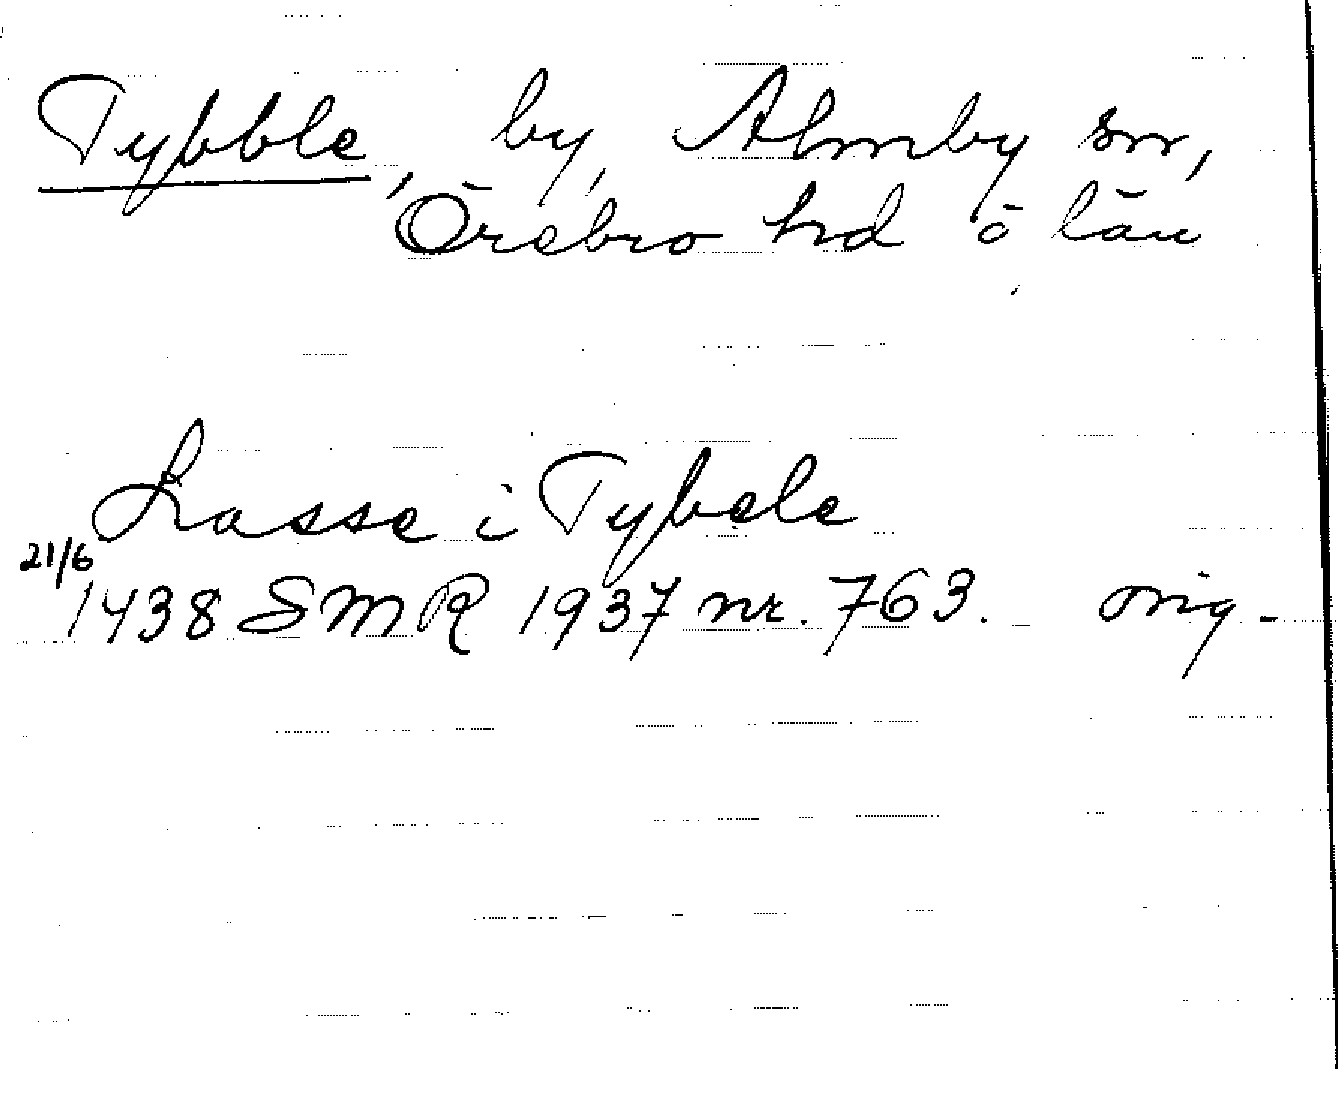 Tybble, by, Almby sn,
Örebro hd o län
Lasse i Tybele
21/6
1438 SMR 1937 nr. 763. orig.